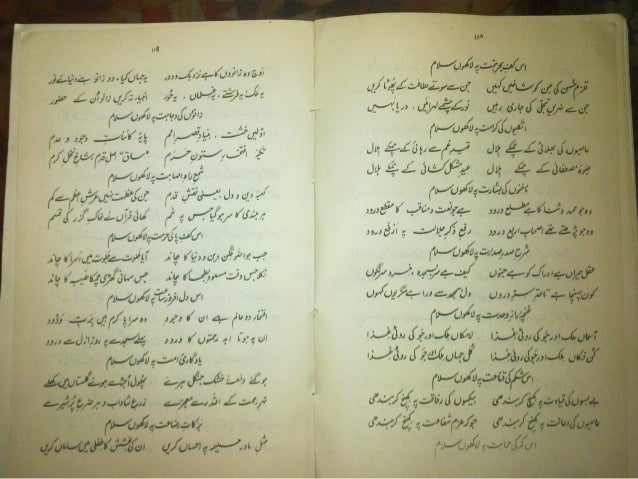 ۱۱۸
اس کف بحر ہمت پہ لاکھوں سلام
قلزم حسن کی جن کو شاخیں کہیں جن سے سوتے لطافت کے پھوٹا کریں
جن سے نہریں تجلی کی جاری رہیں نور کے چشمے لہرائیں، دریا بہیں
انگلیوں کی کرامت پہ لاکھوں سلام
عاصیوں کی بھلائی کے چمکے ہلال قید غم سے رہائی کے چمکے ہلال
جلوۂ مصطفائی کے چمکے ہلال عید مشکل کشائی کے چمکے ہلال
ناخنوں کی بشارت پہ لاکھوں سلام
وہ جو حمد و ثنا کا ہے مطلع درود ہے جو نعت و مناقب کا مقطع درود
وہ جو پڑھتے تھے اصحاب اربع درود رفع ذکر جلالت پہ ارفع درود
شرح صدر صدارت پہ لاکھوں سلام
عقل حیراں ہے ادراک کو ہے جنوں کیف ہے سر بسجدہ، خرد سرنگوں
کون پہنچا ہے تا حد سر دروں دل سمجھ سے ورا ہے مگر یوں کہوں
غنچۂ راز وحدت پہ لاکھوں سلام
آسماں ملک اور جو کی روٹی غذا لامکاں ملک اور جو کی روٹی غذا
کن فکاں ملک اور جو کی روٹی غذا کل جہاں ملک اور جو کی روٹی غذا
اس شکم کی قناعت پہ لاکھوں سلام
بے بسوں کی قیادت پہ کھنچ کر بندھی بیکسوں کی رفاقت پہ کھنچ کر بندھی
عاصیوں کی اعانت پہ کھنچ کر بندھی جو کہ عزم شفاعت پہ کھنچ کر بندھی
اس کمر کی حمایت پہ لاکھوں سلام
۱۱۹
اوج وہ زانوؤں کا ہے نزدیک و دور یہ جہاں کیا۔ دو زانو ہے دنیائے نور
یہ ملک یہ فرشتے، یہ غلماں، یہ حور انبیاء تہ کریں زانو ان کے حضور
زانوؤں کی وجاہت پہ لاکھوں سلام
اولیں خشت، بنیاد قصر امم پایۂ کائنات وجود و عدم
افتخار ستون حرم "ساق" اصل قدم شاخ نخل کرم
شمع راہ اصابت پہ لاکھوں سلام
کعبۂ دین و دل یعنی نقش قدم جن کی عظمت نہیں عرش اعظم سے کم
ہر بلندی کا سر ہو گیا جس پہ خم کھائی قرآں نے خاک گزر کی قسم
اس کف پا کی حرمت پہ لاکھوں سلام
جب ہوا ضو فگن دین و دنیا کا چاند آیا خلوت سے جلوت میں اسرا کا چاند
نکلا جس وقت مسعود و بطحا کا چاند جس سہانی گھڑی چمکا طیبہ کا چاند
اس دل افروز ساعت پہ لاکھوں سلام
افتخار دو عالم ہے ان کا وجود وہ سراپا کرم ہیں برب ودود
ان پہ ہوتا ابد رحمتوں کا ورود پہلے سجدے پہ روز ازل سے درود
یادگاری امت پہ لاکھوں سلام
ہو گئے دفعۃً خشک جنگل ہرے پھول اجڑے ہوئے گلستاں میں کھلے
نہر رحمت کے اللہ رے معجزے زرع شاداب و ہر ضرع پر شیر سے
برکات رضاعت پہ لاکھوں سلام
مثل مادر حلیمہ پہ احساں کریں ان کی بخشش کا طفلی میں ساماں کریں